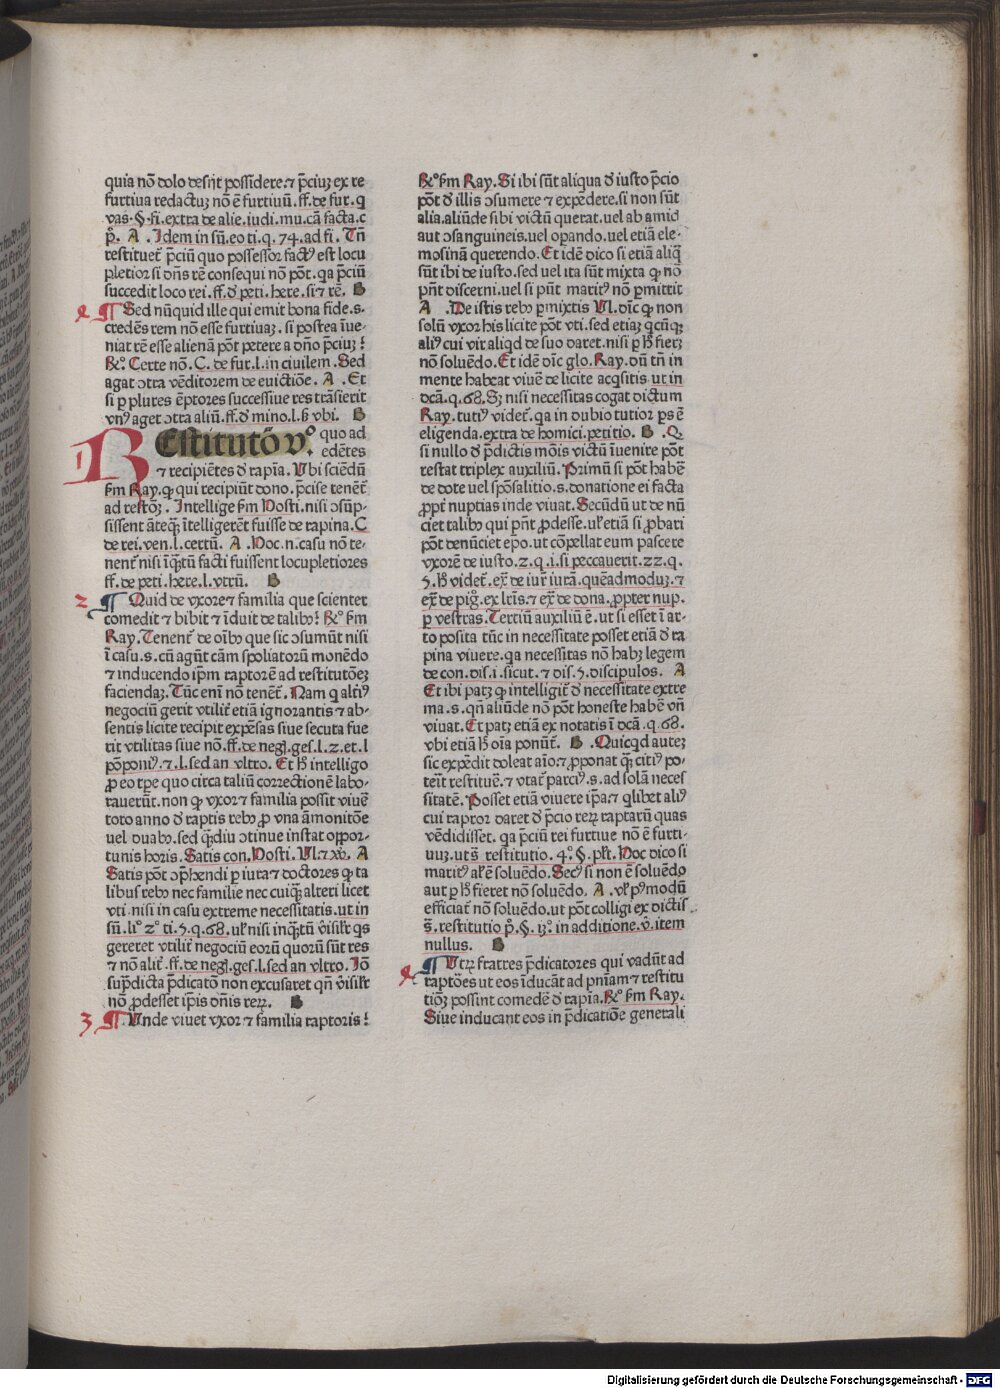 quia nō dolo desijt possidere. ⁊ p̄ciuꝫ ex re
furtiua redactuꝫ nō ē furtiuū. ff. de fur. q
vas. §. fi. extra de alie. iudi. mu. cā facta. c
p̊. A . Idem in sū. eo ti. q. 74. ad fi. Tn̄
restituet᷑ p̄ciū quo possessor factꝰ est locu
pletior si dn̄s rē consequi nō pōt. qa p̄ciū
succedit loco rei. ff. d̓ peti. here. si ⁊ rē. B
¶ Sed nūquid ille qui emit bona fide. s.
credēs rem nō esse furtiuaꝫ. si postea īue-
niat rē esse alienā pōt petere a dn̄o p̄ciuꝫ?
℞º. Certe nō. C. de fur. l. in ciuilem. Sed
agat ↄtra vēditorem de euictiōe. A . Et
si p̱ plures ēptores successiue res trāsierit
vnꝰ aget ↄtra aliū. ff. d̓ mino. l. ꝫ vbi. B
REstitutō v̊. quo ad
edētes
⁊ recipiētes d̓ rapīa. Vbi sciēdū
ẜm Ray. ꝙ qui recipiūt dono. p̄cise tenēt᷑
ad restōꝫ. Intellige ẜm Hosti. nisi ↄsūp-
sissent āteqꝫ ītelligerēt fuisse de rapina. C
de rei. ven. l. certū. A . Hoc. n. casu nō te-
nent᷑ nisi īqꝫtū facti fuissent locupletiores
ff. de peti. here. l. vtrū. B
2 ¶ Quid de vxore ⁊ familia que scienter
comedit ⁊ bibit ⁊ īduit de talibꝰ? ℞º ẜm
Ray. Tenent᷑ de oībꝰ que sic ↄsumūt nisi
ī casu. s. cū agūt cām spoliatorū monēdo
⁊ inducendo ip̄m raptorē ad restitutōeꝫ
faciendaꝫ. Tūc eni nō tenēt᷑. Nam q alt̓iꝰ
negociū gerit vtilit᷑ etiā ignorantis ⁊ ab-
sentis licite recipit expēsas siue secuta fue
rit vtilitas siue nō. ff. de negl. ges. l. 2. et. l
pōponiꝰ. ⁊. l. sed an vltro. Et ħ intelligo
ꝓ eo tp̄e quo circa taliū correctionē labo-
rauerūt. non ꝙ vxor ⁊ familia possit viuē
toto anno d̓ raptis rebꝰ ꝓ vna āmonitōe
vel duabꝰ. sed qꝫdiu ↄtinue instat oppor-
tunis horis. Satis con. Hosti. Vl. ⁊ xb. A
Satis pōt ↄp̄hendi p̱ iura ⁊ doctores ꝙ ta
libus rebꝰ nec familie nec cuiqꝫ alteri licet
vti. nisi in casu extreme necessitatis. ut in
sū. li̊ 2̊ ti. 5. q. 68. uł nisi inqꝫtū v̓isilr̄ qs
gereret vtilit᷑ negociū eorū quorū sūt res
⁊ nō alit᷑. ff. de negl. ges. l. sed an vltro. Iō
sup̄dicta p̄dicatō non excusaret qn̄ v̓isilr̄
nō ꝓdesset ip̄is dn̄is reꝝ. B
3 ¶. Vnde viuet vxor ⁊ familia raptoris?
℞º ẜm Ray. Si ibi sūt aliqua d̓ iusto p̄cio
pōt d̓ illis ↄsumere ⁊ expēdere. si non sūt
alia. aliūde sibi victū querat. uel ab amic̄
aut ↄsanguineis. uel oꝑando. uel etiā ele-
mosinā querendo. Et idē dico si etiā aliq̄
sūt ibi de iusto. sed uel ita sūt mixta ꝙ nō
pn̄t discerni. uel si pn̄t maritꝰ nō ꝑmittit
A . De istis rebꝰ ꝑmixtis Vl. dic̄ ꝙ non
solū vxor his licite pōt vti. sed etiaꝫ qcūqꝫ
aliꝰ cui vir aliqd de suo daret. nisi ꝑ ħ fieꝫ
nō soluēdo. Et idē dic̄ glo. Ray. dū tn̄ in
mente habeat viuē de licite acqsitis. ut in
dcā. q. 68. Sꝫ nisi necessitas cogat dictum
Ray. tutiꝰ videt᷑. qa in dubio tutior ꝑs ē
eligenda. extra de homici. petitio. B . Q
si nullo d̓ p̄dictis mōis victū īuenire pōt
restat triplex auxiliū. Primū si pōt habē
de dote uel sp̄osalitio. s. donatione ei facta
ꝓpt̓ nuptias inde viuat. Secūdū ut de nū
ciet talibꝰ qui pn̄t ꝓdesse. uł etiā si ꝓbari
pōt denūciet ep̄o. ut cōpellat eum pascere
vxorē de iusto. 2. q. i. si peccauerit. 22. q.
5. ħ videt᷑. ex̄ de iur̄ iurā. quēadmoduꝫ. ⁊
ex̄ de pig̊. ex lr̄is. ⁊ ex̄ de dona. ꝓpter nup.
ꝑ vestras. Tertiū auxiliū ē. ut si esset ī ar-
to posita tūc in necessitate posset etiā d̓ ra
pina viuere. qa necessitas nō habꝫ legem
de con. dis. i. sicut. ⁊ dis. 5. discipulos. A
Et ibi patꝫ ꝙ intelligit᷑ d̓ necessitate extre
ma. s. qn̄ aliūde nō pōt honeste habē vn̄
viuat. Et patꝫ etiā ex notatis ī dcā. q. 68.
vbi etiā ħ oīa ponūt᷑. B . Quicqd auteꝫ
sic expēdit doleat aīo. ⁊ ꝓponat qꝫ citiꝰ po-
teīt restituē. ⁊ vtat᷑ parciꝰ. s. ad solā neces
sitatē. Posset etiā viuere ip̄a. ⁊ qlibet aliꝰ
cui raptor daret d̓ p̄cio reꝝ raptarū quas
vēdidisset. qa p̄ciū rei furtiue nō ē furti-
uuꝫ. ut s̄ restitutio. 4̊. §. pł. Hoc dico si
maritꝰ ał ē soluēdo. Secꝰ si non ē soluēdo
aut ꝑ ħ fieret nō soluēdo. A . vł pꝰ modū
efficiat᷑ nō soluēdo. ut pōt colligi ex dictis
s̄. restitutio p̊. §. 13̊. in additione. v̓. item
nullus. B
¶ Vtꝝ fratres p̄dicatores qui vadūt ad
raptōes ut eos īducāt ad pn̄iam ⁊ restitu
tiōꝫ possint comedē d̓ rapīa. ℞º ẜm Ray.
Siue inducant eos in p̄dicatiōe generali
Digitalisierung gefördert durch die Deutsche Forschungsgemeinschaft - DFG